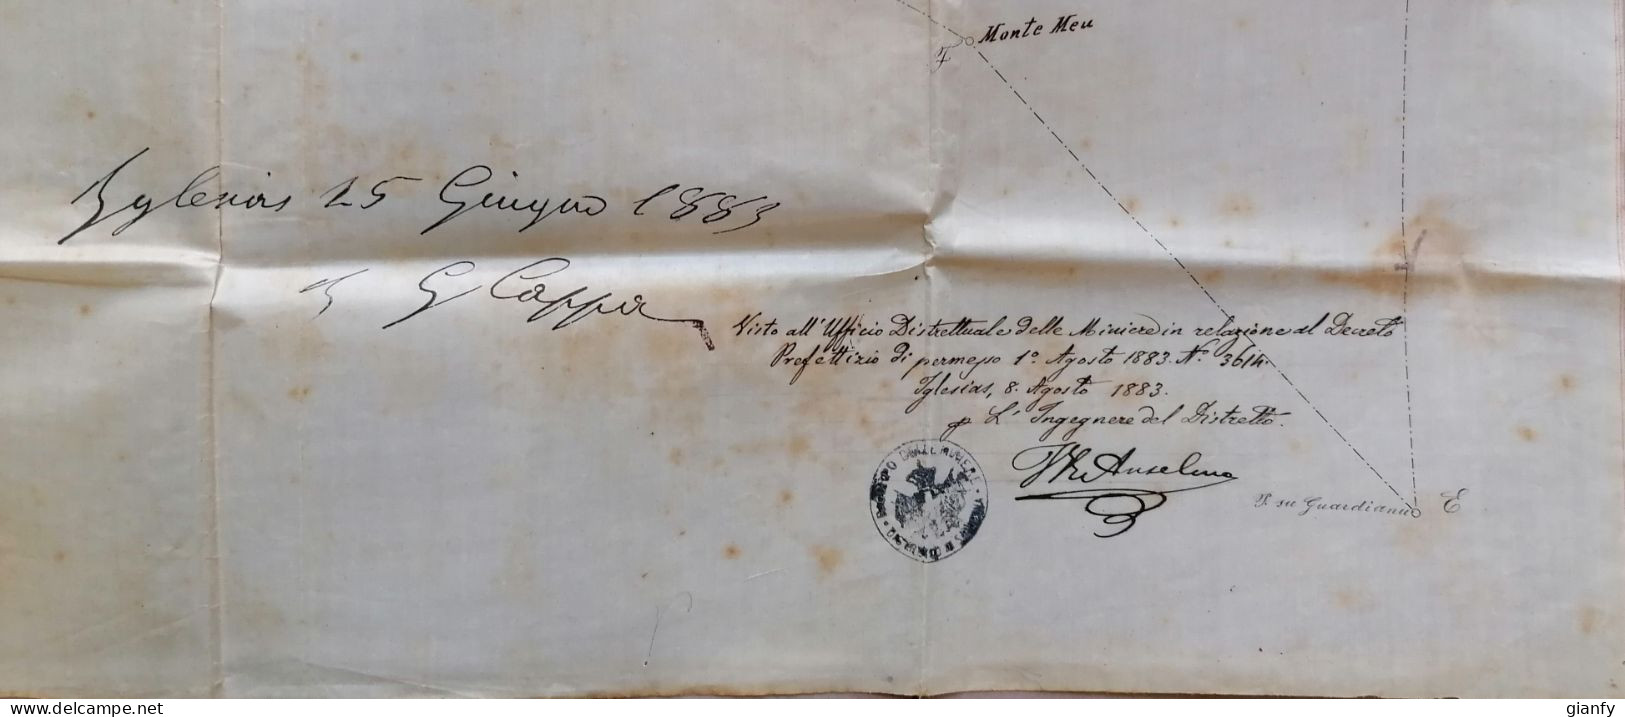 Monte Meu
F
Iglesias 25 Giugno 1883
G Cappa
Visto all'Ufficio Distrettuale delle Miniere in relazione al Decreto
Prefettizio di permesso 1º. Agosto 1883. Nº. 3614.
Iglesias, 8. Agosto 1883.
p L'Ingegnere del Distretto.
Anselmo
P. su Guardianu E
delcampe.net
gianfy